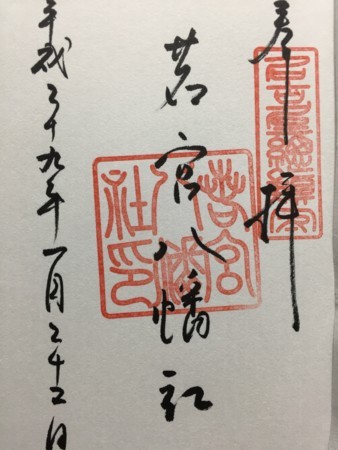 奉拝
若宮八幡社
平成二十九年一月二十二日
若宮八幡社印